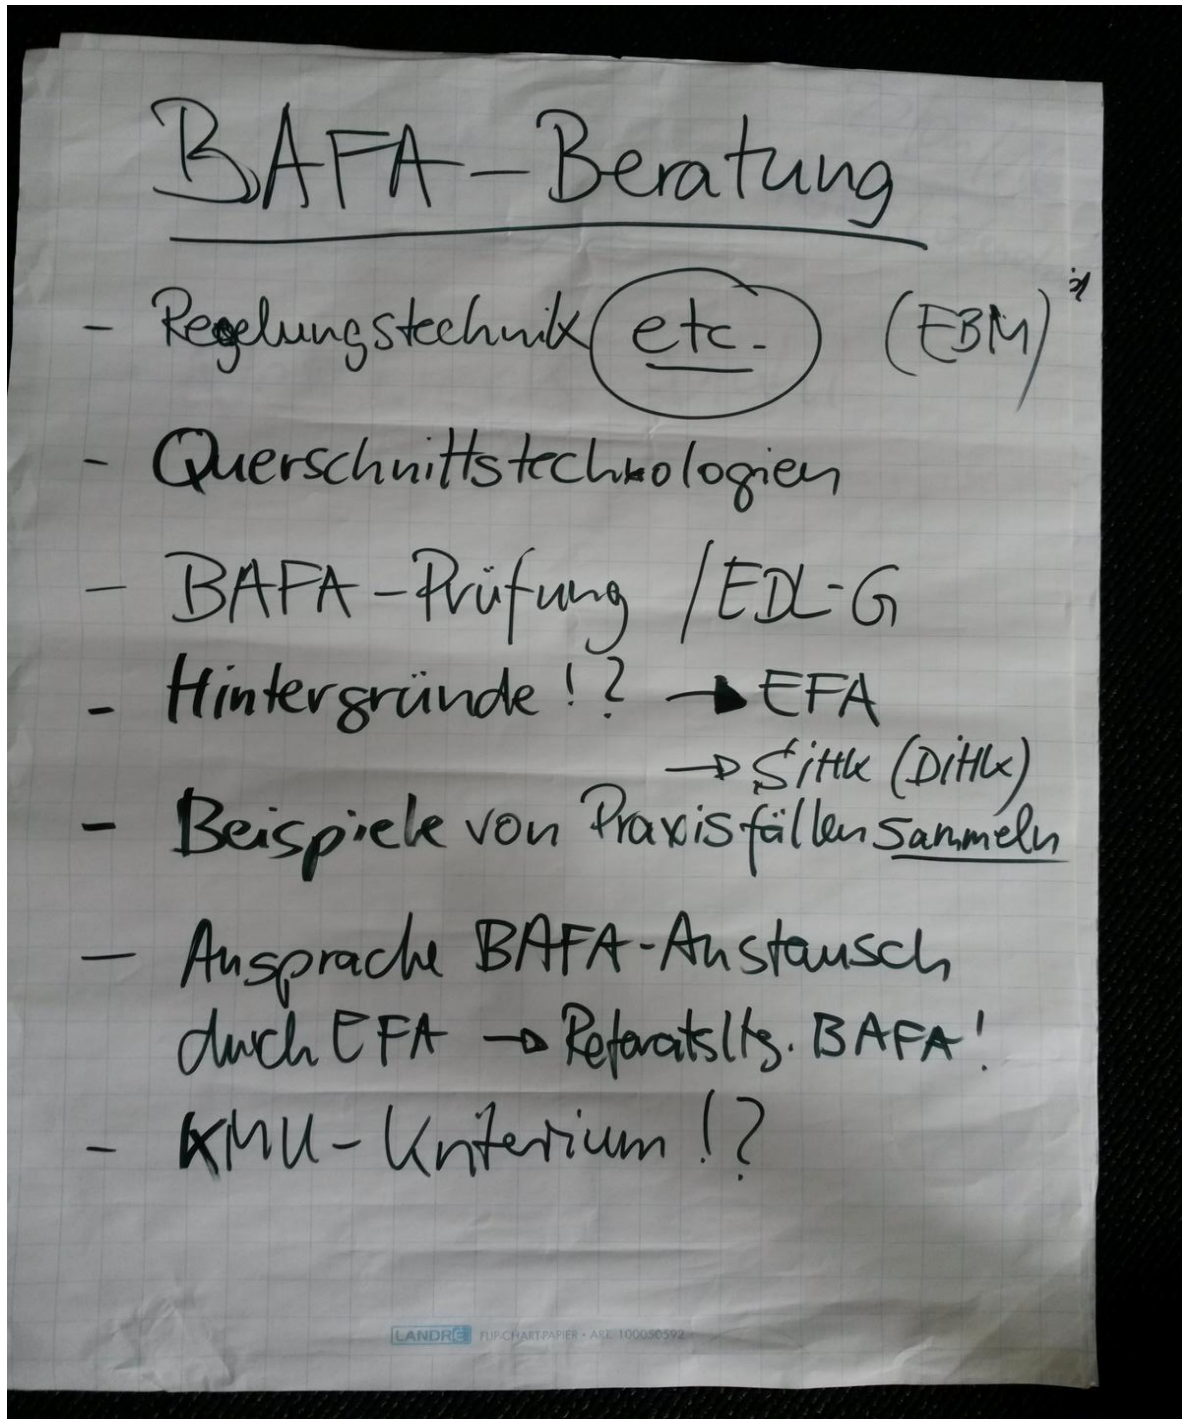 BAFA-Beratung
- Regelungstechnik etc. (EBM)
- Querschnittstechnologien
- BAFA-Prüfung / EDL-G
- Hintergründe!? → EFA
→ Sittk (Dittk)
- Beispiele von Praxisfällen sammeln
- Ansprache BAFA-Austausch
durch EFA → Referatsltg. BAFA!
- KMU-Kriterium!?
LANDRÉ FLIP-CHART-PAPIER • ART. 100050592